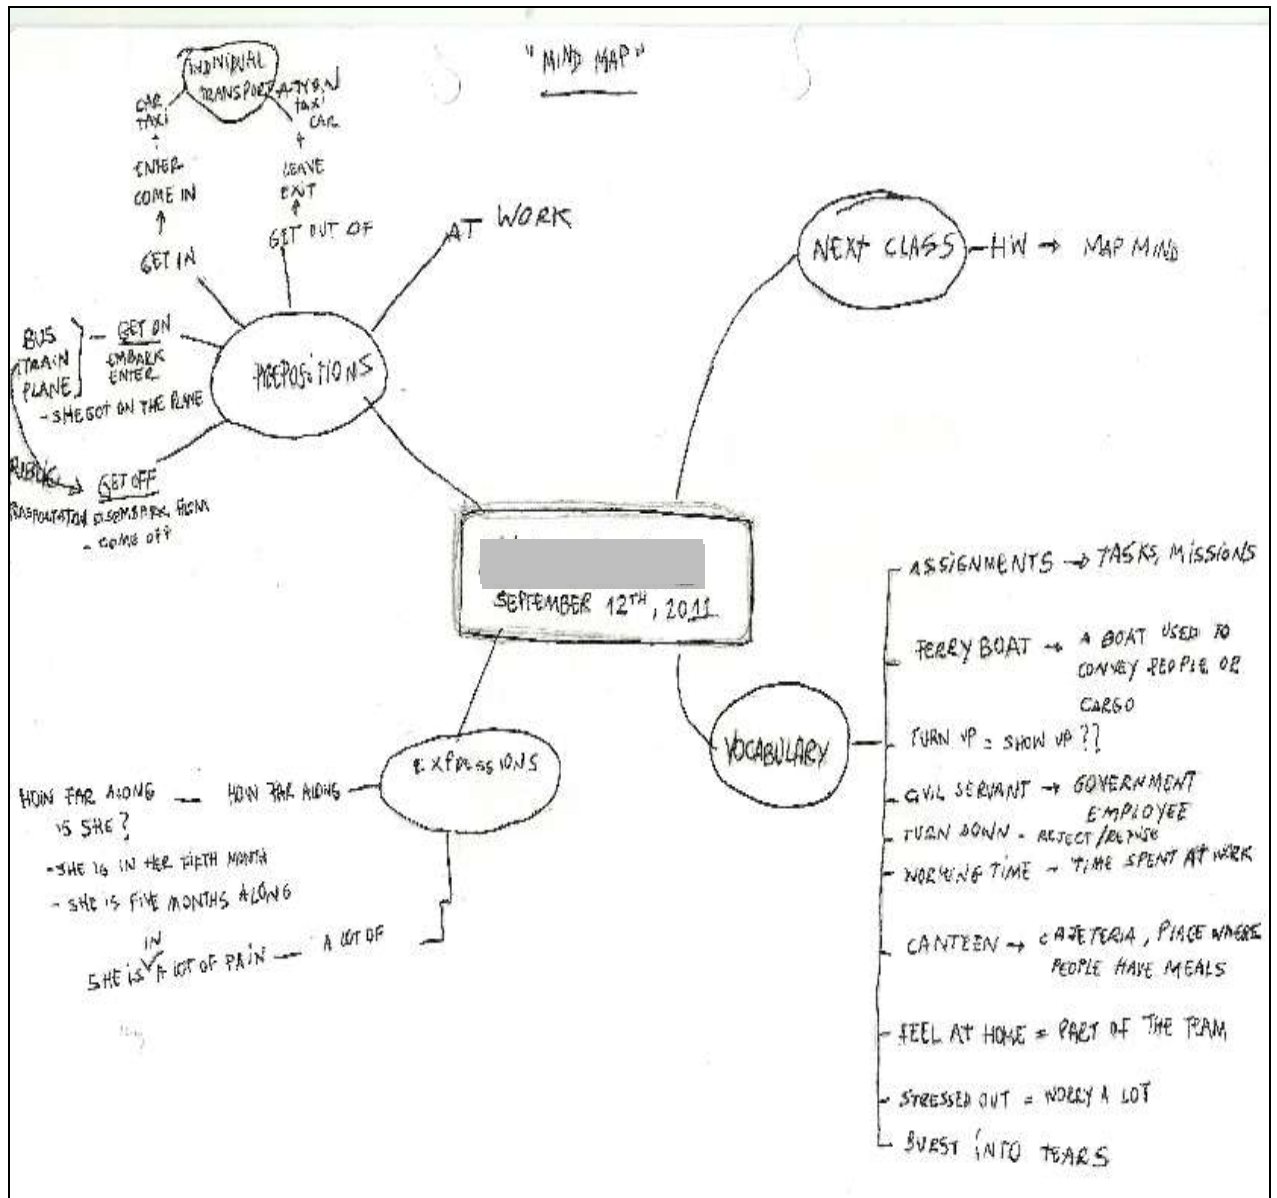 "MIND MAP"
INDIVIDUAL
TRANSPORTATION
CAR
TAXI
ENTER
COME IN
GET IN
TAXI
CAR
LEAVE
EXIT
GET OUT OF
AT WORK
PREPOSITIONS
BUS
TRAIN
PLANE
GET ON
EMBARK
ENTER
- SHE GOT ON THE PLANE
PUBLIC
GET OFF
DISEMBARK FROM
- COME OFF
NEXT CLASS - HW → MAP MIND
SEPTEMBER 12TH, 2011
EXPRESSIONS
HOW FAR ALONG
HOW FAR ALONG
IS SHE?
- SHE IS IN HER FIFTH MONTH
- SHE IS FIVE MONTHS ALONG
A LOT OF
IN
SHE IS A LOT OF PAIN
VOCABULARY
ASSIGNMENTS → TASKS, MISSIONS
FERRY BOAT → A BOAT USED TO
CONVEY PEOPLE OR
CARGO
TURN UP = SHOW UP??
CIVIL SERVANT → GOVERNMENT
EMPLOYEE
TURN DOWN - REJECT/REFUSE
WORKING TIME - TIME SPENT AT WORK
CANTEEN → CAFETERIA, PLACE WHERE
PEOPLE HAVE MEALS
FEEL AT HOME = PART OF THE TEAM
STRESSED OUT = WORRY A LOT
BURST INTO TEARS